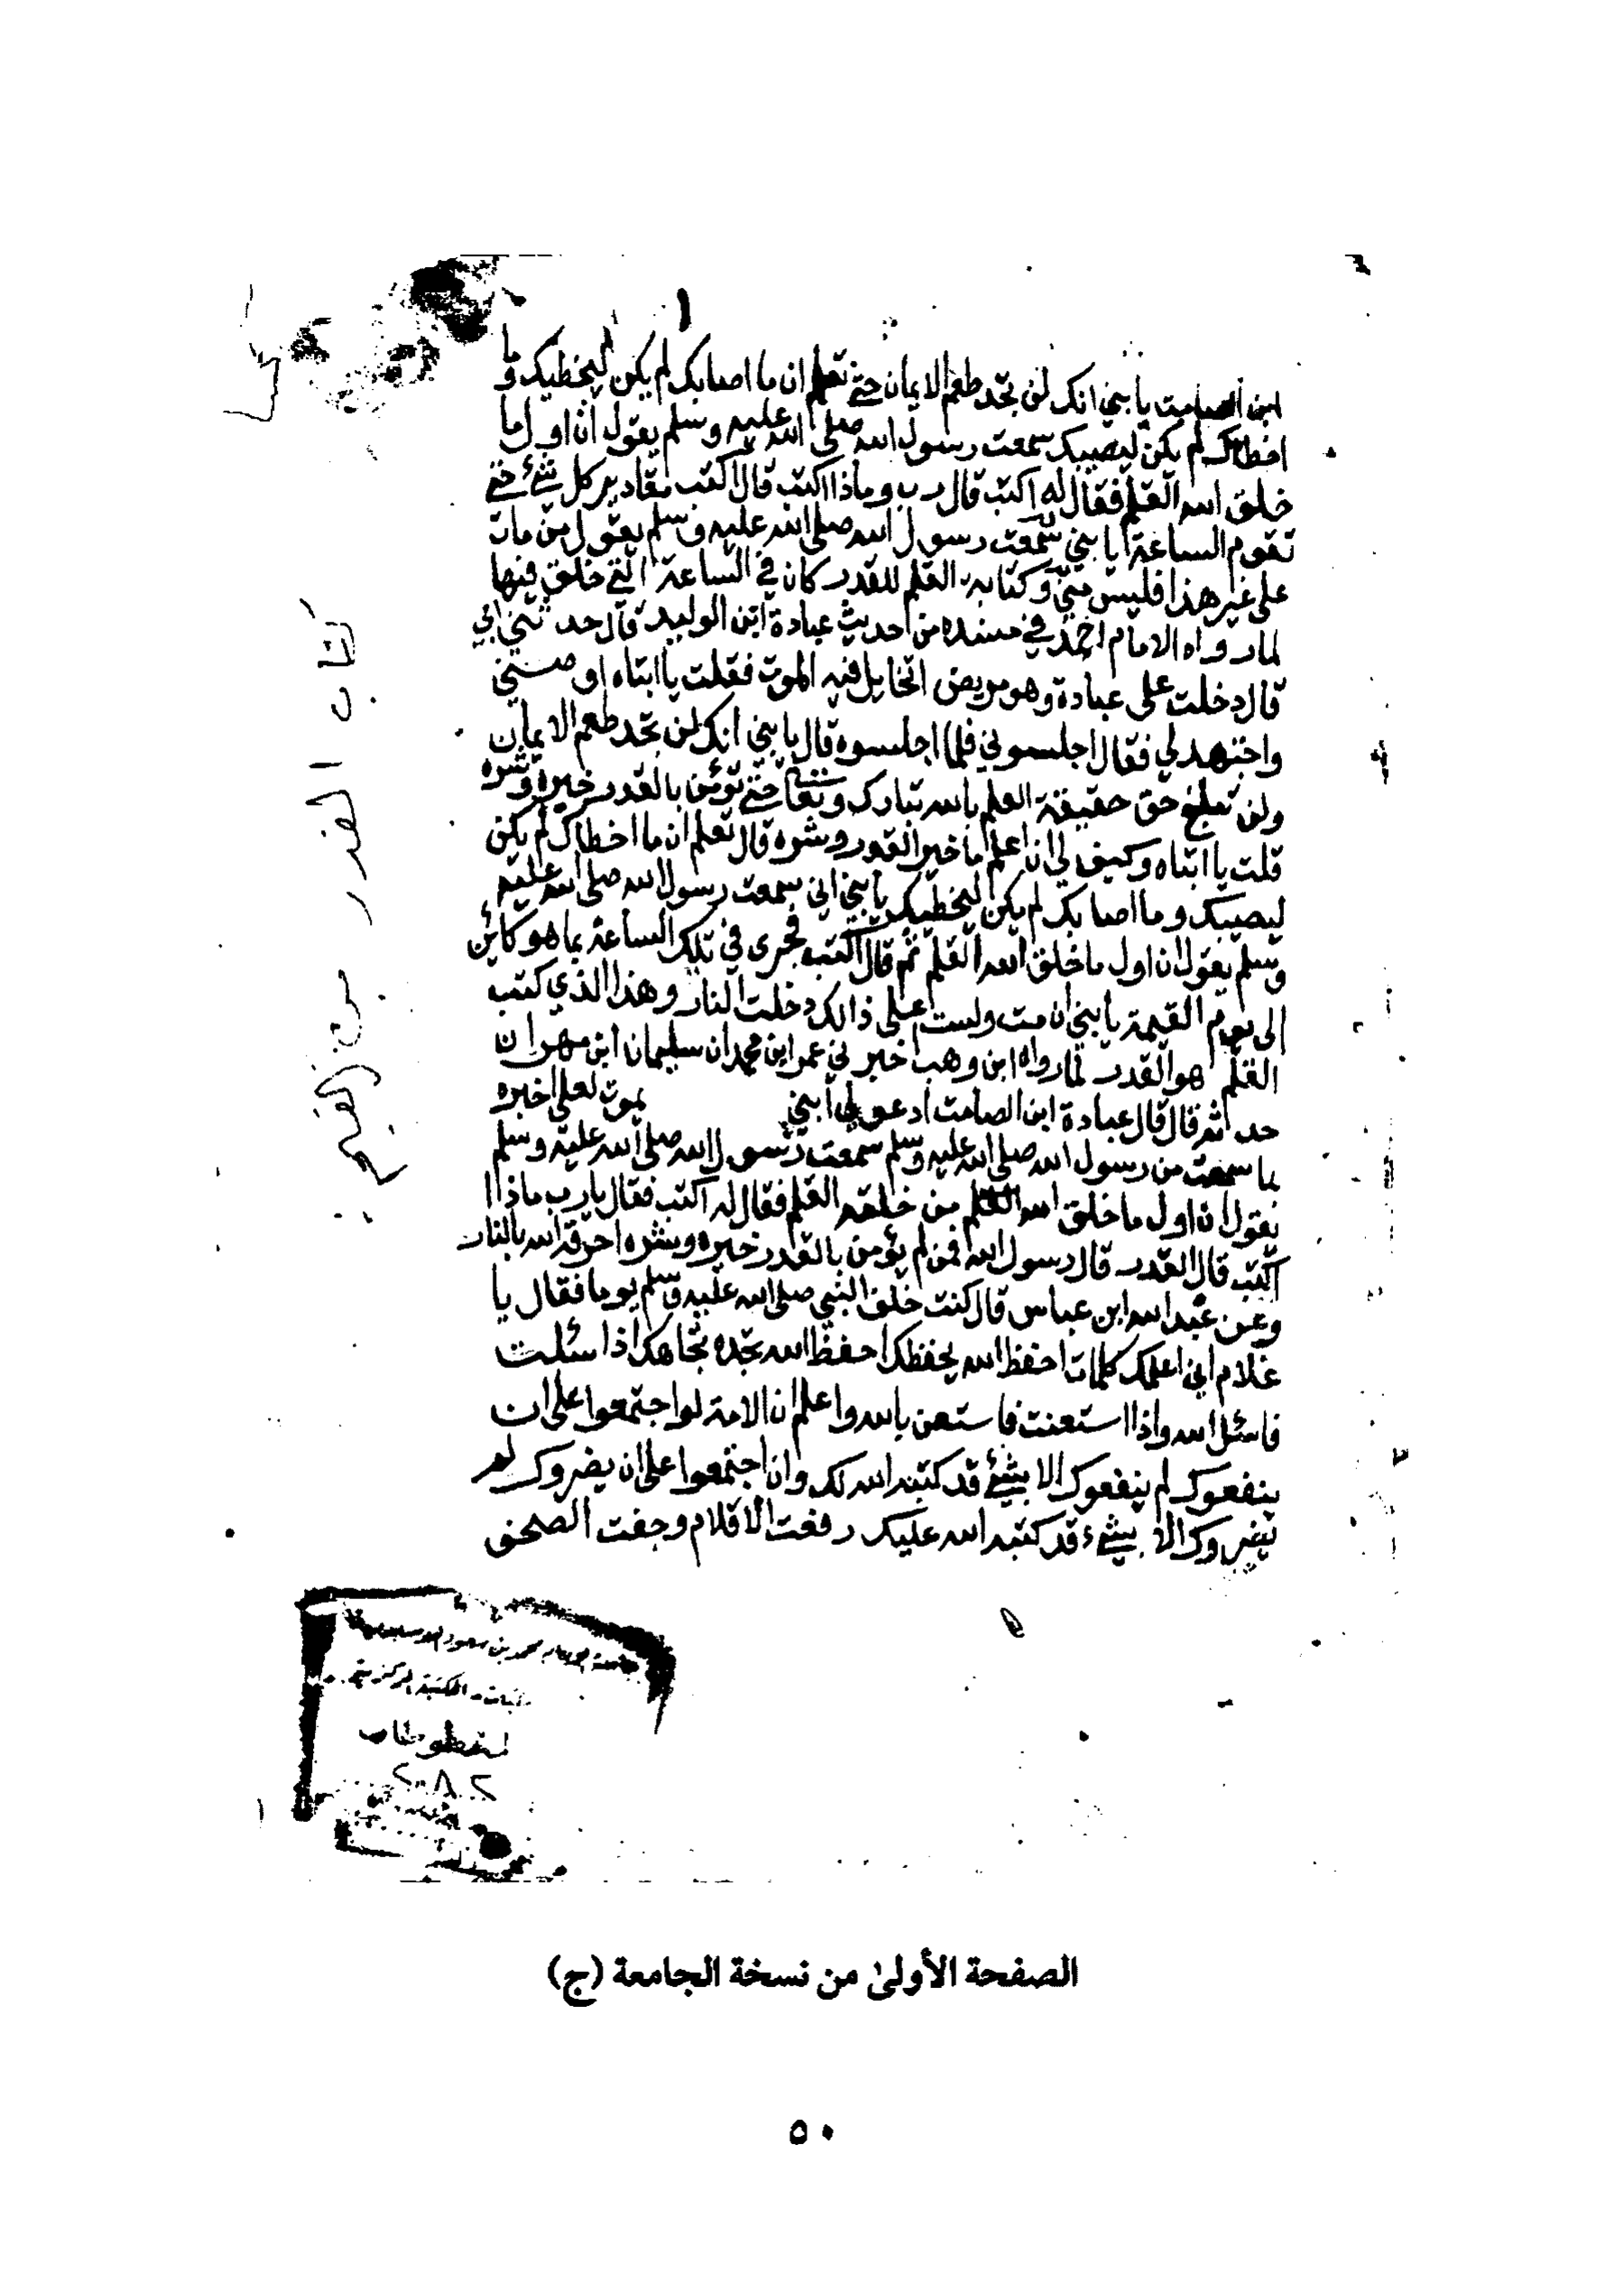 ١
ابن الصامت يا بني انك لن تجد طعم الايمان حتى تعلم ان ما اصابك لم يكن ليخطيك وما
اخطاك لم يكن ليصيبك سمعت رسول الله صلى الله عليه وسلم يقول ان اول ما
خلق الله القلم فقال له اكتب قال رب وماذا اكتب قال اكتب مقادير كل شئ حتى
تقوم الساعة يا بني سمعت رسول الله صلى الله عليه وسلم يقول من مات
على غير هذا فليس مني وكتابة القلم للقدر كان في الساعة التي خلق فيها
لما رواه الامام احمد في مسنده من حديث عبادة ابن الوليد قال حدثني ابي
قال دخلت على عبادة وهو مريض اتخايل فيه الموت فقلت يا ابتاه اوصني
واجتهد لي فقال اجلسوني فلما اجلسوه قال يا بني انك لن تجد طعم الايمان
ولن تبلغ حق حقيقة العلم بالله تبارك وتعا حتى تؤمن بالقدر خيره وشره
قلت يا ابتاه وكيف لي ان اعلم ما خير القدر وشره قال تعلم ان ما اخطاك لم يكن
ليصيبك وما اصابك لم يكن ليخطيك يا بني اني سمعت رسول الله صلى الله عليه
وسلم يقول ان اول ما خلق الله القلم ثم قال اكتب فجرى في تلك الساعة بما هو كائن
الى يوم القيمة يا بني ان مت ولست على ذالك دخلت النار وهذا الذي كتب
القلم هو القدر لما رواه ابن وهب اخبرني عمر ابن محمد ان سليمان ابن مهران
حدثه قال قال عبادة ابن الصامت ادعو لي ابني يموت لعلي اخبره
بما سمعت من رسول الله صلى الله عليه وسلم سمعت رسول الله صلى الله عليه وسلم
يقول ان اول ما خلق الله القلم من خلقه القلم فقال له اكتب فقال يا رب ماذا ا
اكتب قال القدر قال رسول الله فمن لم يؤمن بالقدر خيره وشره احرقه الله بالنار
وعن عبد الله ابن عباس قال كنت خلف النبي صلى الله عليه وسلم يوما فقال يا
غلام اني اعلمك كلمات احفظ الله يحفظك احفظ الله تجده تجاهك اذا سئلت
فاسئل الله واذا استعنت فاستعن بالله واعلم ان الامة لو اجتمعوا على ان
ينفعوك لم ينفعوك الا بشئ قد كتبه الله لك وان اجتمعوا على ان يضروك لم
يضروك الا بشئ قد كتبه الله عليك رفعت الاقلام وجفت الصحف
كتاب القدر لابن القيم
محمد بن سعود
المكتبة المركزية
المخطوطات
٢٠٨٢
الصفحة الأولى من نسخة الجامعة (ج)
٥٠